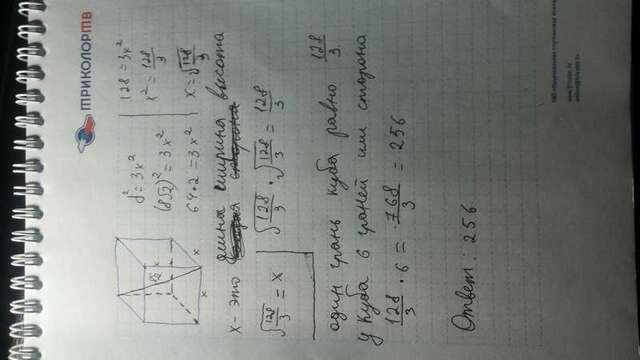 ТРИКОЛОРТВ
d² = 3x²
(8√2)² = 3x²
64·2 = 3x²
128 = 3x²
x² = 128/3
x = √128/3
x
x
x
x - это длина ширина высота
√128/3 = x
√128/3 · √128/3 = 128/3
один грань куба равно 128/3
у куба 6 граней или сторона
128/3 · 6 = 768/3 = 256
Ответ: 256